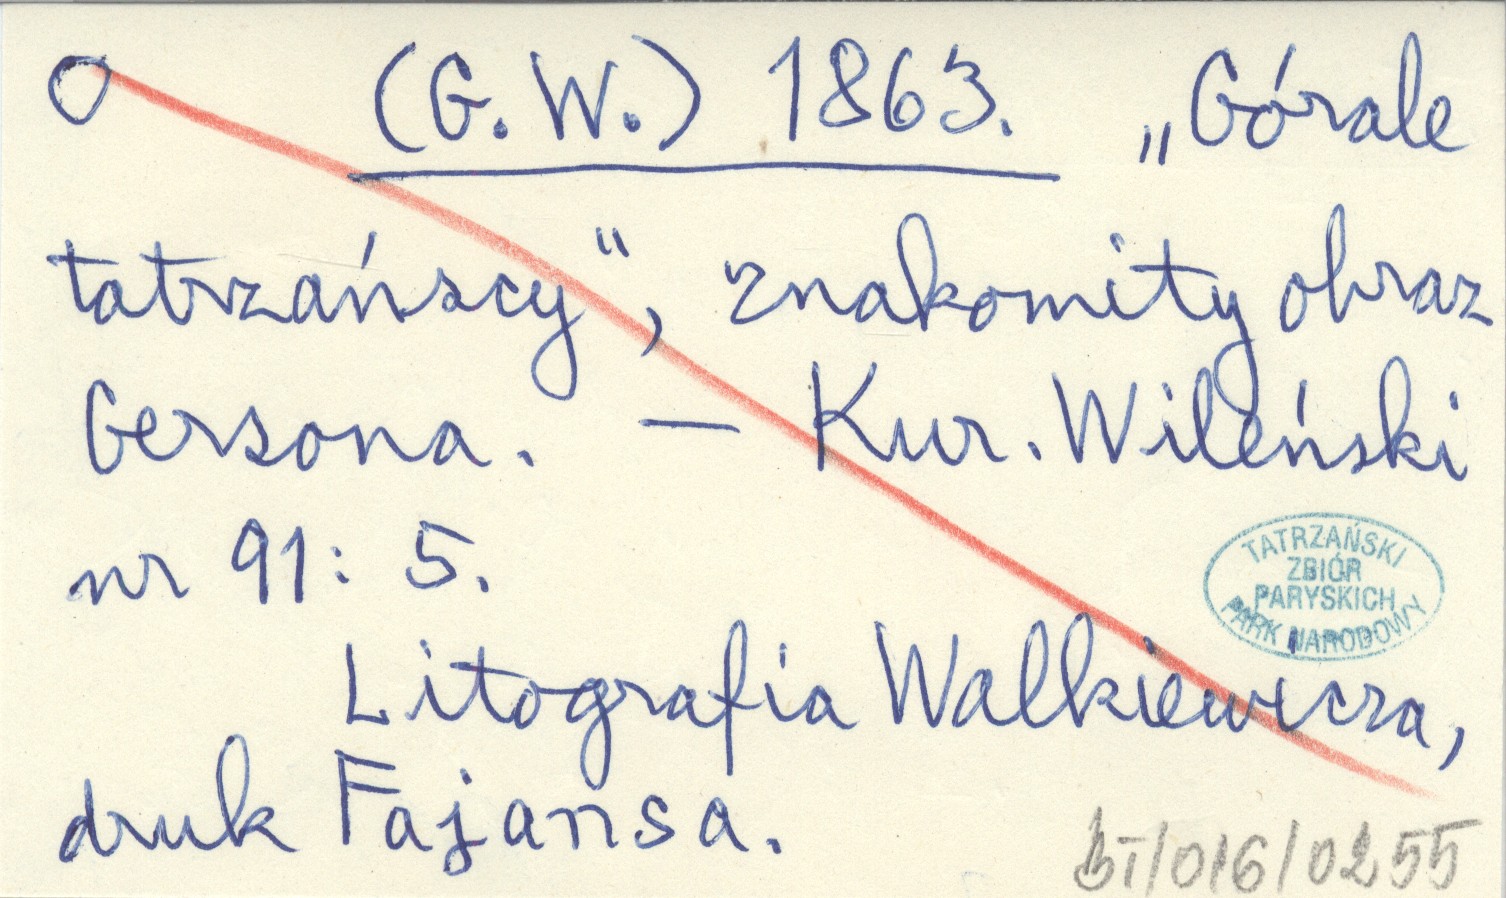 O (G. W.) 1863. „Górale
tatrzańscy“, znakomity obraz
Gersona. — Kur. Wileński
nr 91: 5.
TATRZAŃSKI
ZBIÓR
PARYSKICH
PARK NARODOWY
Litografia Walkiewicza,
druk Fajansa.
BT/016/0255